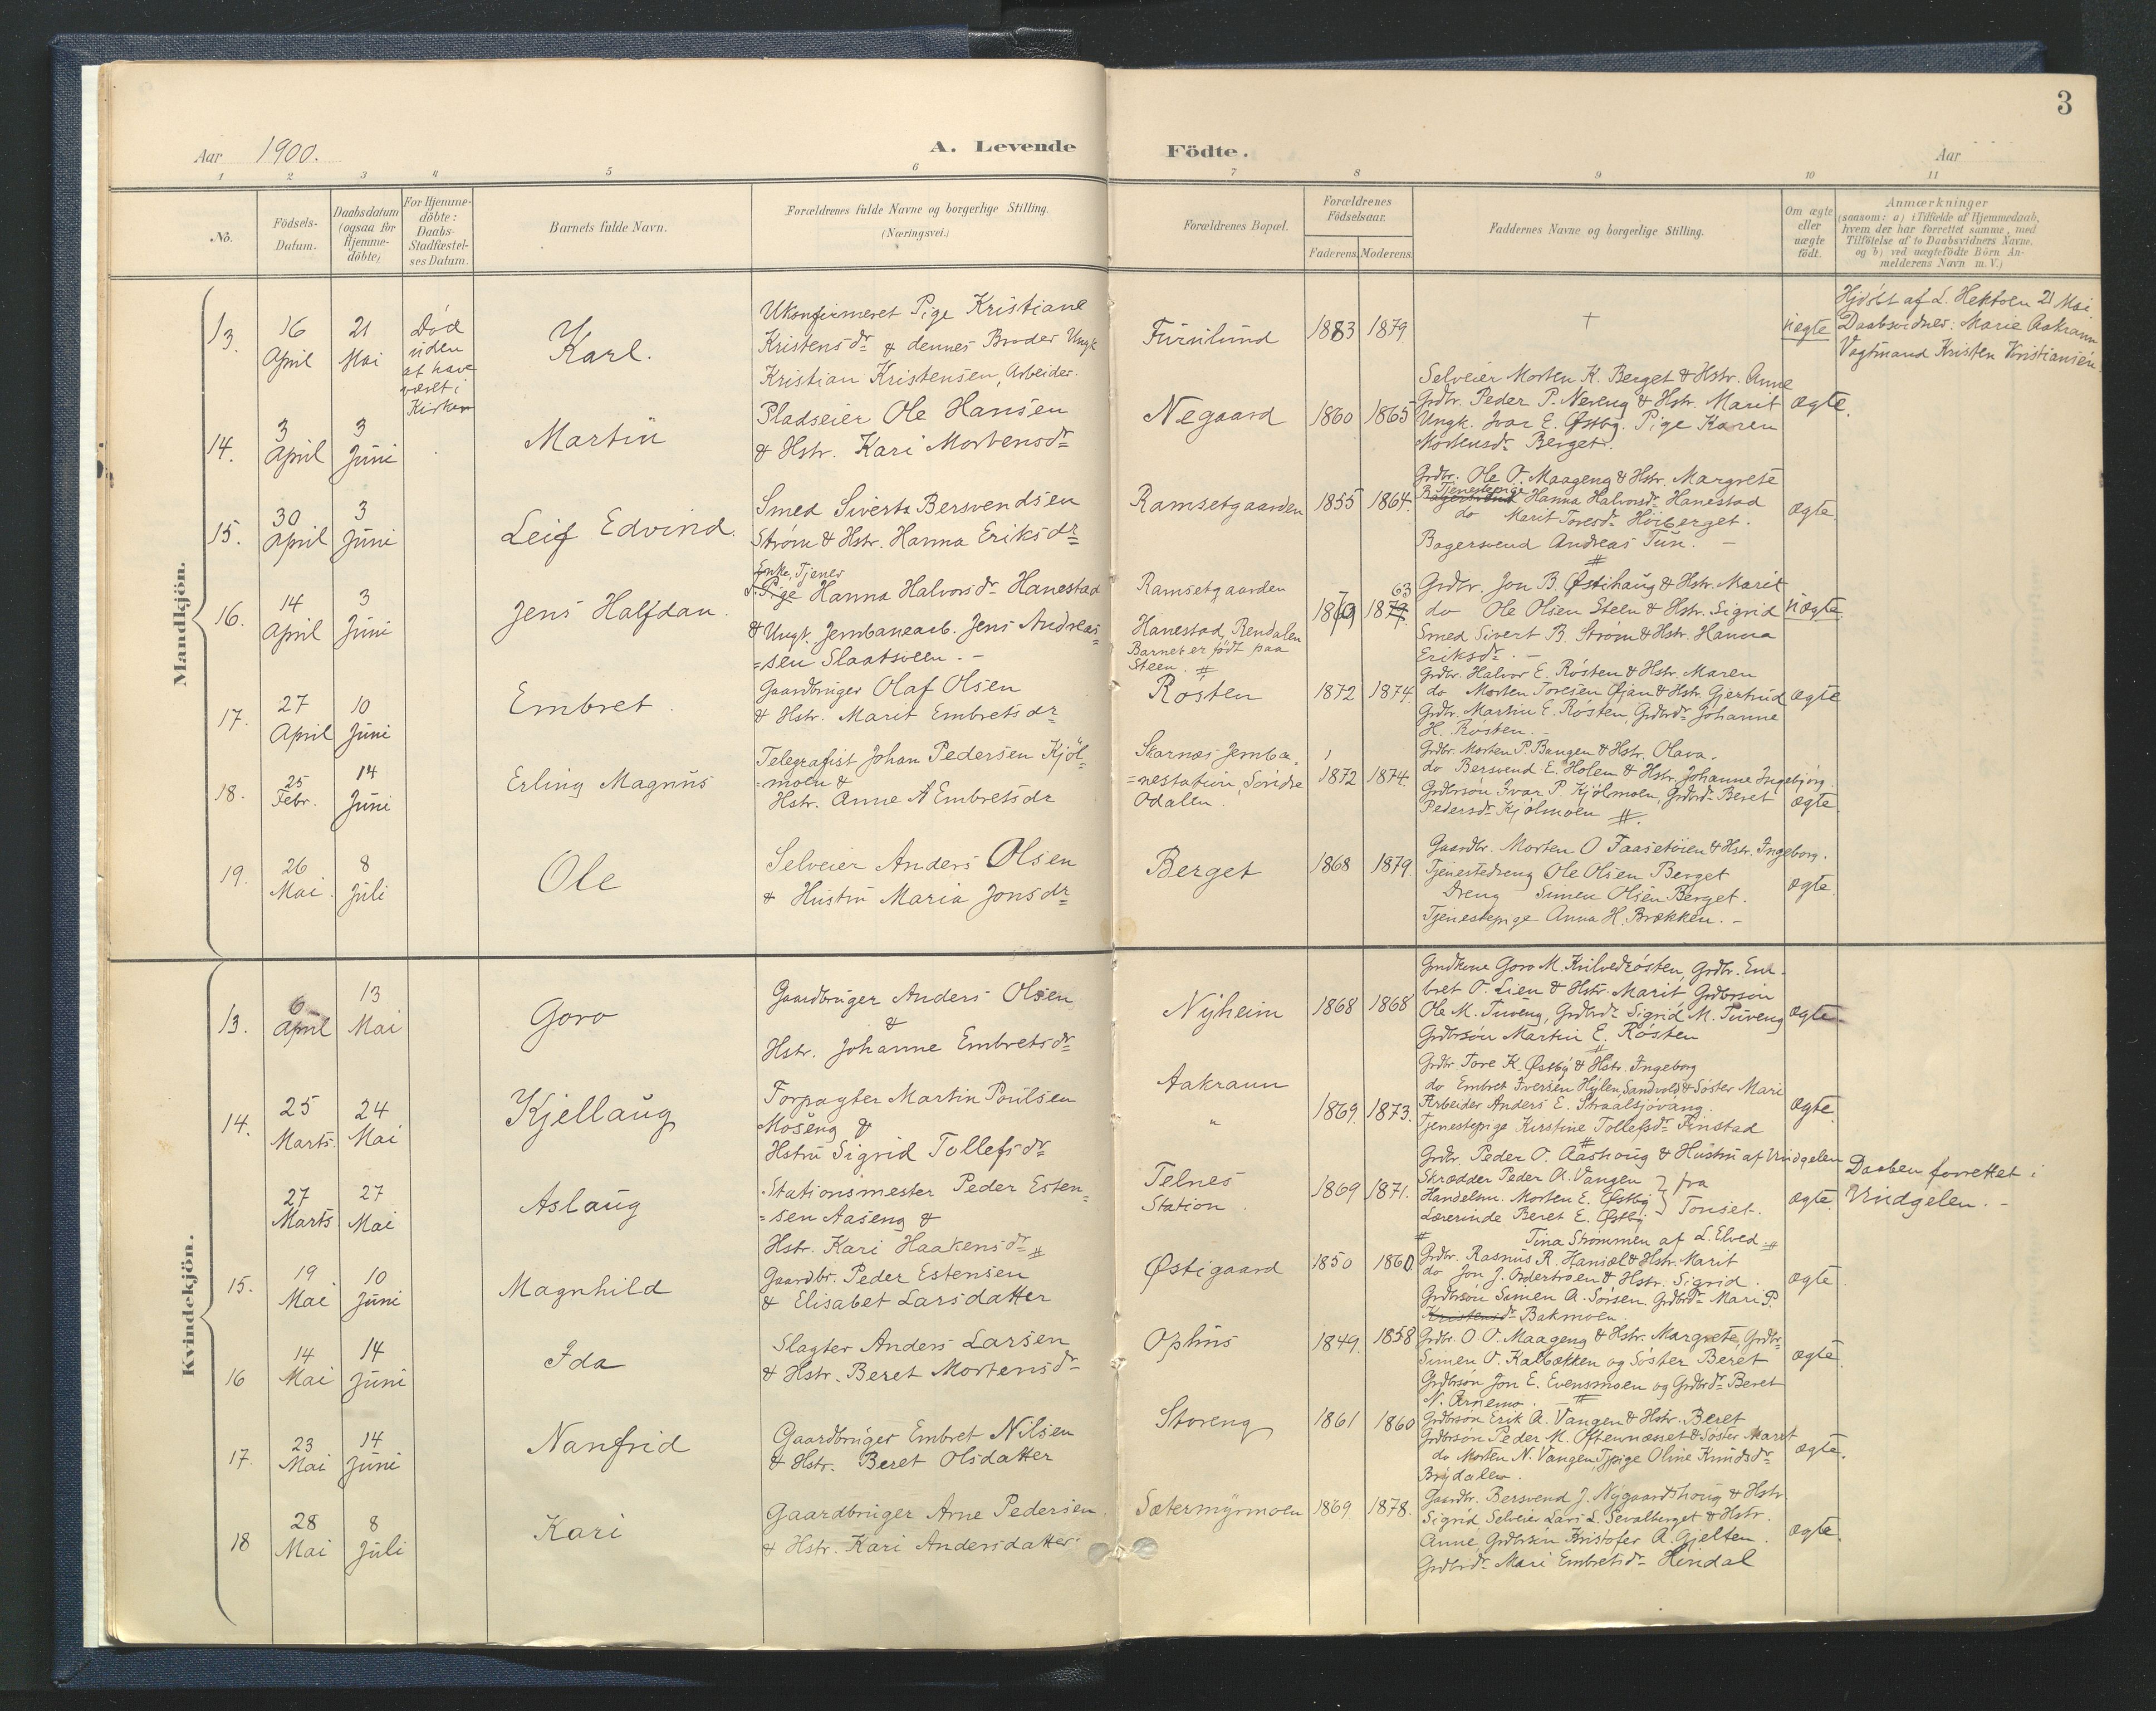 3
Aar 1900.
A. Levende Födte.
Aar
1 2 3 4 5 6 7 8 9 10 11
No.
Födsels-
Datum.
Daabsdatum
(ogsaa for
Hjemme-
döbte)
For Hjemme-
döbte:
Daabs-
Stadfæstel-
ses Datum.
Barnets fulde Navn.
Forældrenes fulde Navne og borgerlige Stilling.
(Næringsvei.)
Forældrenes Bopæl.
Forældrenes
Födselsaar.
Faderens. Moderens.
Faddernes Navne og borgerlige Stilling.
Om ægte
eller
uægte
födt.
Anmærkninger
(saasom: a) i Tilfælde af Hjemmedaab,
hvem der har forrettet samme, med
Tilföielse af to Daabsvidners Navne.
og b) ved uægtefödte Börn An-
melderens Navn m. V.)
Mandkjön.
13.
16
April
21
Mai
Död
uden
at have
været i
Kirken
Karl.
Ukonfirmeret Pige Kristiane
Kristensdr. & dennes Broder Ungk
Kristian Kristensen, Arbeider.
Furulund
1883 1879.
+
uægte
Hjdöbt af L. Hektoen 21 Mai.
Daabsvidner: Marie Aakrann
Vogtmand Kristen Kristiansen.
14.
3
April
3
Juni
Martin
Pladseier Ole Hansen
& Hstr. Kari Mortensdr
Negaard
1860 1865
Selveier Morten K. Berget & Hstr. Anne
Grdbr. Peder P. Neveng & Hstr. Marit
Ungk. Ivar E. Østbg. Pige Karen
Mortensdr. Berget.
ægte.
15.
30
April
3
Juni
Leif Edvind.
Smed Sivert Bersvendsen
Strøm & Hstr. Hanna Eriksdr
Ramsetgaarden
1855 1864.
Grdbr. Ole O. Maageng & Hstr. Margrete
Tjenestepige Hanna Halvorsdr. Hanestad
do Marit Toresdr Höiberget.
Bagersvend Andreas Tun. -
ægte.
16.
14
April
3
Juni
Jens Halfdan.
Enke, Tjenes
Pige Hanna Halvorsdr Hanestad
& Ungk. Jernbanearb. Jens Andreas=
=sen Slaatsveen. -
Ramsetgaarden
Hanestad, Rendalen
Barnet er födt paa
Steen. #
1879 1863
Grdbr. Jon B. Østihaug & Hstr. Marit
do Ole Olsen Steen & Hstr. Sigrid
Smed Sivert B. Strøm & Hstr. Hanna
Eriksdr. -
uægte
17.
27
April
10
Juni
Embret.
Gaardbruger Olaf Olsen
& Hstr. Marit Embretsdr
Rösten
1872 1874.
Grdbr. Halvor E. Rösten & Hstr. Maren
do Morten Toresen Øian & Hstr. Gjertrud
Grdbr. Martin E. Rösten, Grdbrdr Johanne
H. Rösten. -
ægte
18.
25
Febr.
14
Juni
Erling Magnus
Telegrafist Johan Pedersen Kjöl-
=moen &
Hstr. Anne A Embretsdr
Skarnæs Jernba=
=nestation, Söndre
Odalen.
1872 1874.
Grdbr. Morten P. Bangen & Hstr. Olava.
do Bersvend E. Holen & Hstr. Johanne Ingebjörg.
Grdbrsön Ivar P. Kjölmoen, Grdbrdr Beret
Pedersdr. Kjölmoen #.
ægte
19.
26
Mai.
8
Juli
Ole
Selveier Anders Olsen
& Hustru Maria Jonsdr
Berget
1868 1879.
Gaardbr. Morten O Faasetöien & Hstr. Ingeborg.
Tjenestedreng Ole Olsen Berget
Dreng Simen Olsen Berget.
Tjenestepige Anna H. Brækken. -
ægte.
Kvindekjön.
13.
6
April
13
Mai
Goro
Gaardbruger Anders Olsen
&
Hstr. Johanne Embretsdr
Nyheim
1868 1868
Grdkone Goro M. Kulvedrösten, Grdbr. Em-
bret O. Lien & Hstr. Marit Grdbrsön
Ole M. Tuveng, Grdbrdr Sigrid M. Tuveng
Grdbrsön Martin E. Rösten
ægte
14.
25
Marts.
24
Mai
Kjellaug
Forpagter Martin Poulsen
Moseng &
Hstru Sigrid Tollefsdr
Aakrann
"
1869. 1873.
Grdbr. Tore K. Østby & Hstr. Ingeborg
do Embret Iversen Hylen, Sandvold & Söster Mari
Arbeider Anders E. Straalsjövang.
Tjenestepige Kirstine Tollefsdr Finstad
ægte.
27
Marts
27
Mai
Aslaug
Stationsmester Peder Esten=
=sen Aaseng &
Hstr. Kari Haakensdr #
Telnes
Station.
1869 1871.
Grdbr. Peder O. Aashoug & Hustru af Vindgelen
Skrædder Peder A. Vangen } fra
Handelsm. Morten E. Østby
Lærerinde Beret E. Østby } Tonset.
# Tina Strømmen af L. Elved #
ægte.
Daaben forrettet i
Vindgelen. -
15.
19
Mai
10
Juni
Magnhild
Gaardbr. Peder Estensen
& Elisabet Larsdatter
Østigaard
1850 1860.
Grdbr. Rasmus R. Haniel & Hstr. Marit
do Jon J. Ordertroen & Hstr. Sigrid.
Grdbrsön Simen A. Sorsen. Grdbrdr Mari P.
Kristensdr Bakmoen.
ægte.
16
14
Mai
14
Juni
Ida
Slagter Anders Larsen
& Hstr. Beret Mortensdr
Ophus
1849. 1858
Grdbr. O. O. Maageng & Hstr. Margrete, Grdbr=
Simen O. Kalbækken og Söster Beret
Grdbrsön Jon E. Evensmoen og Grdbrdr Beret
N. Arnemo.
ægte.
17.
23
Mai
14
Juni
Nanfrid
Gaardbruger Embret Nilsen
& Hstr. Beret Olsdatter
Storeng
1861 1860
Grdbrsön Erik A. Vangen & Hstr. Beret
Grdbrsön Peder M. Oftennæsset & Söster Maret
do Morten N. Vangen, Tjpige Oline Knudsdr
Brydalen.
ægte.
18
28
Mai
8
Juli
Kari
Gaardbruger Arne Pedersen
& Hstr. Kari Andersdatter.
Sætermyrmoen
1869. 1878.
Gaardbr. Bersvend J. Nygaardshoug & Hstr.
Sigrid Selveier Lars L. Sevalberget & Hstr.
Anne, Grdbrsön Kristofer A. Gjelten.
Grdbrdr. Mari Embretsdr Hindal
ægte.